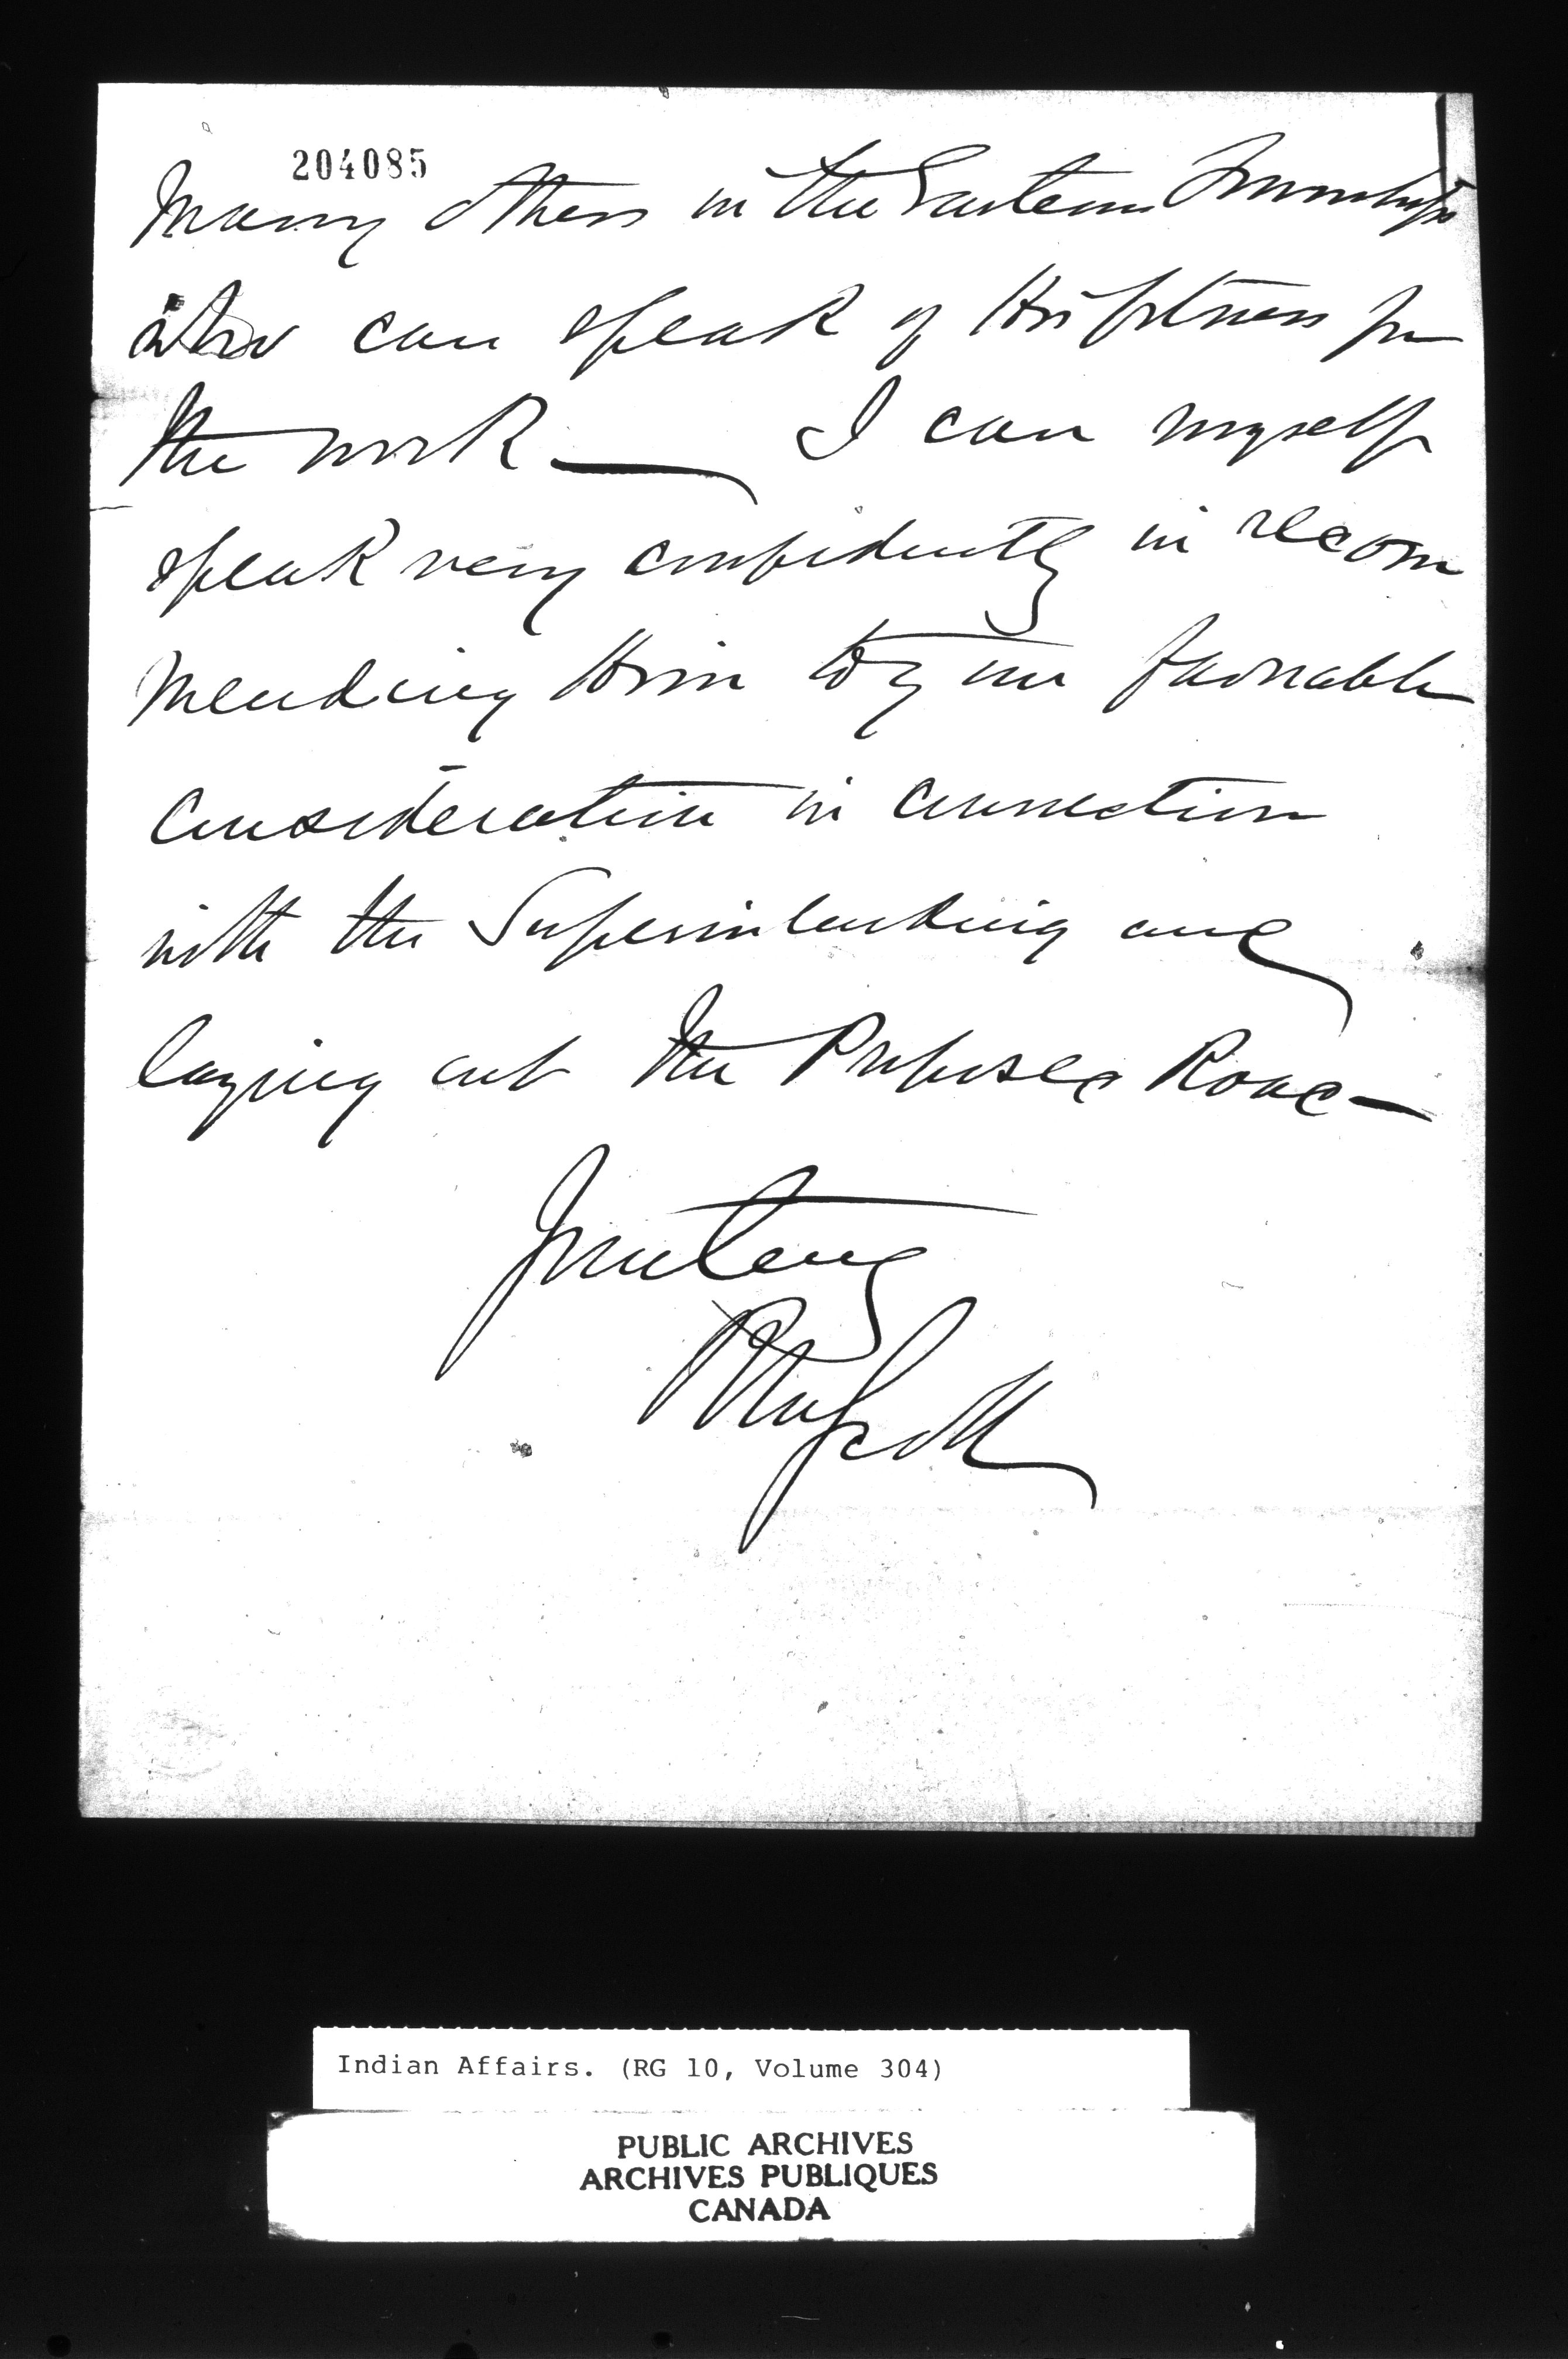 204085
Many others in the Eastern Townships
who can speak of His fitness for
the work — I can myself
speak very confidently in recom
mending Him to your favorable
consideration in connection
with the Superintending and
laying out the Proposed Road —
Yours truly
Scott
Indian Affairs. (RG 10, Volume 304)
PUBLIC ARCHIVES
ARCHIVES PUBLIQUES
CANADA